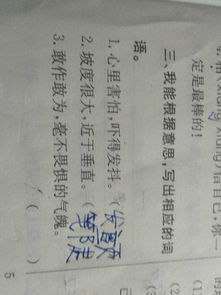 定是最棒的!
三、我能根据意思,写出相应的词
语。
1. 心里害怕,吓得发抖。(发颤
2. 坡度很大,近于垂直。(笔陡
3. 敢作敢为,毫不畏惧的气魄。( )
5
(2)